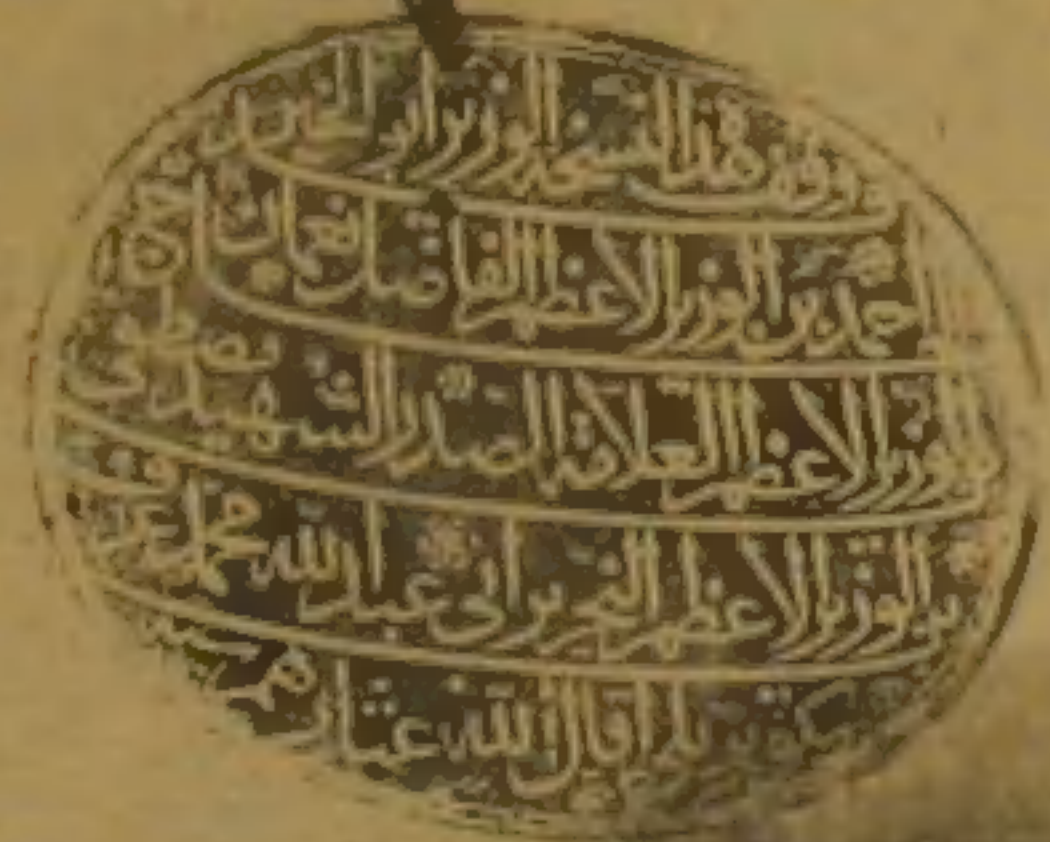 وقف هذا النسخة الوزير ابو الخير
احمد بن الوزير الاعظم الفاضل نعمان
الوزير الاعظم العلامة الصدر الشهيد مصطفى
بن الوزير الاعظم النحرير ابي عبد الله محمد عرف
بكوپريلي اقال الله عثارهم